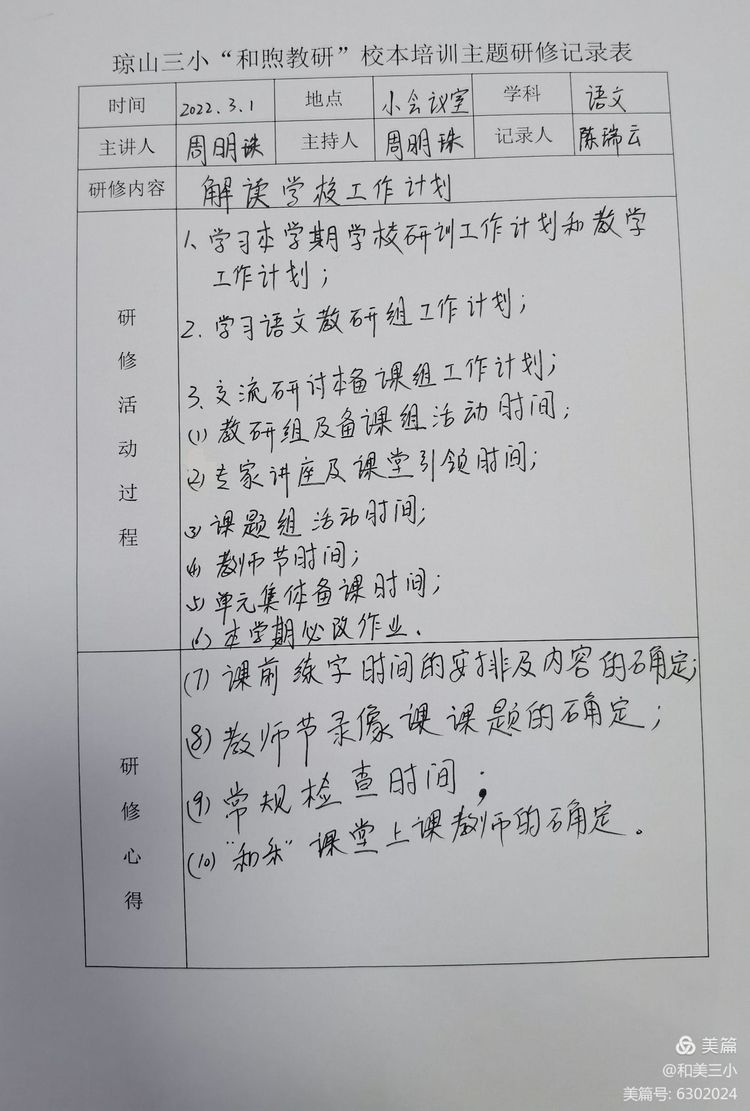 琼山三小“和煦教研”校本培训主题研修记录表
时间 2022.3.1 地点 小会议室 学科 语文
主讲人 周明珠 主持人 周明珠 记录人 陈瑞云
研修内容 解读学校工作计划
研修活动过程
1、学习本学期学校研训工作计划和教学
工作计划；
2.学习语文教研组工作计划；
3.交流研讨本备课组工作计划；
(1)教研组及备课组活动时间；
(2)专家讲座及课堂引领时间；
(3)课题组活动时间；
(4)教师节时间；
(5)单元集体备课时间；
(6)本学期必改作业.
研修心得
(7)课前练字时间的安排及内容的确定；
(8)教师节录像课课题的确定；
(9)常规检查时间；
(10)“和乐”课堂上课教师的确定。
美篇
@和美三小
美篇号: 6302024